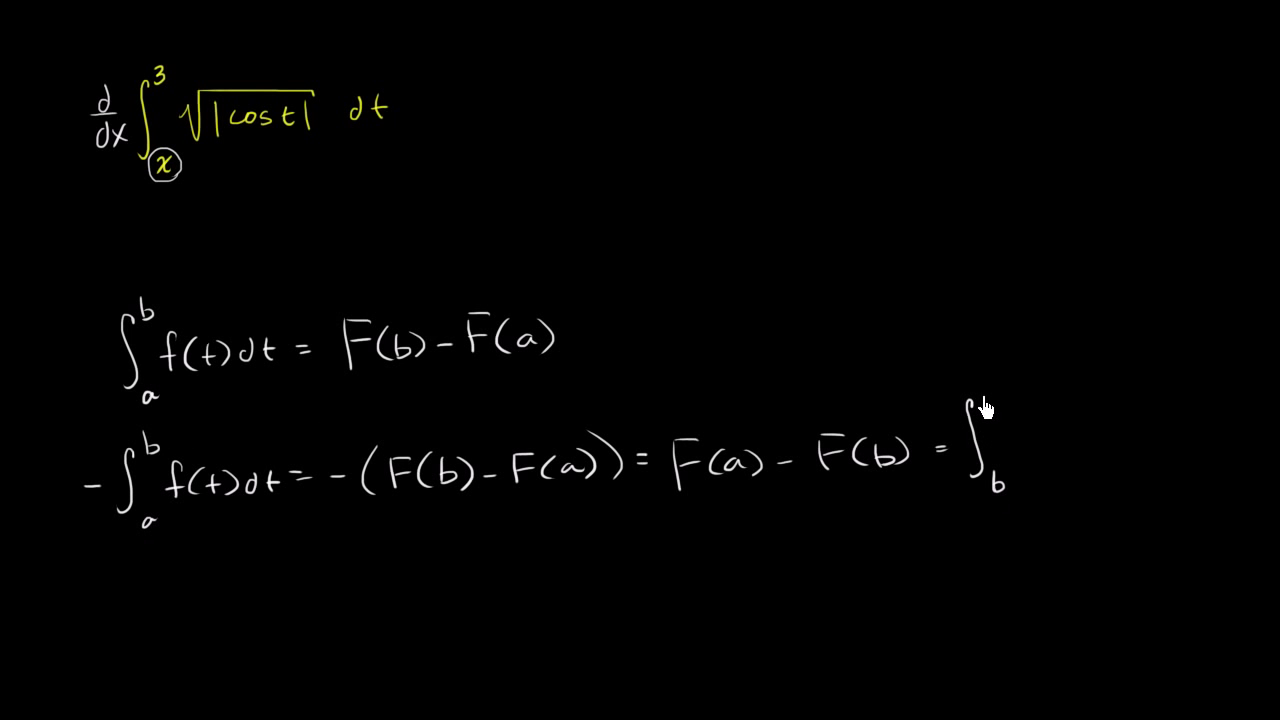 d/dx ∫_x^3 √|cos t| dt
∫_a^b f(t)dt = F(b) - F(a)
- ∫_a^b f(t)dt = -(F(b) - F(a)) = F(a) - F(b) = ∫_b